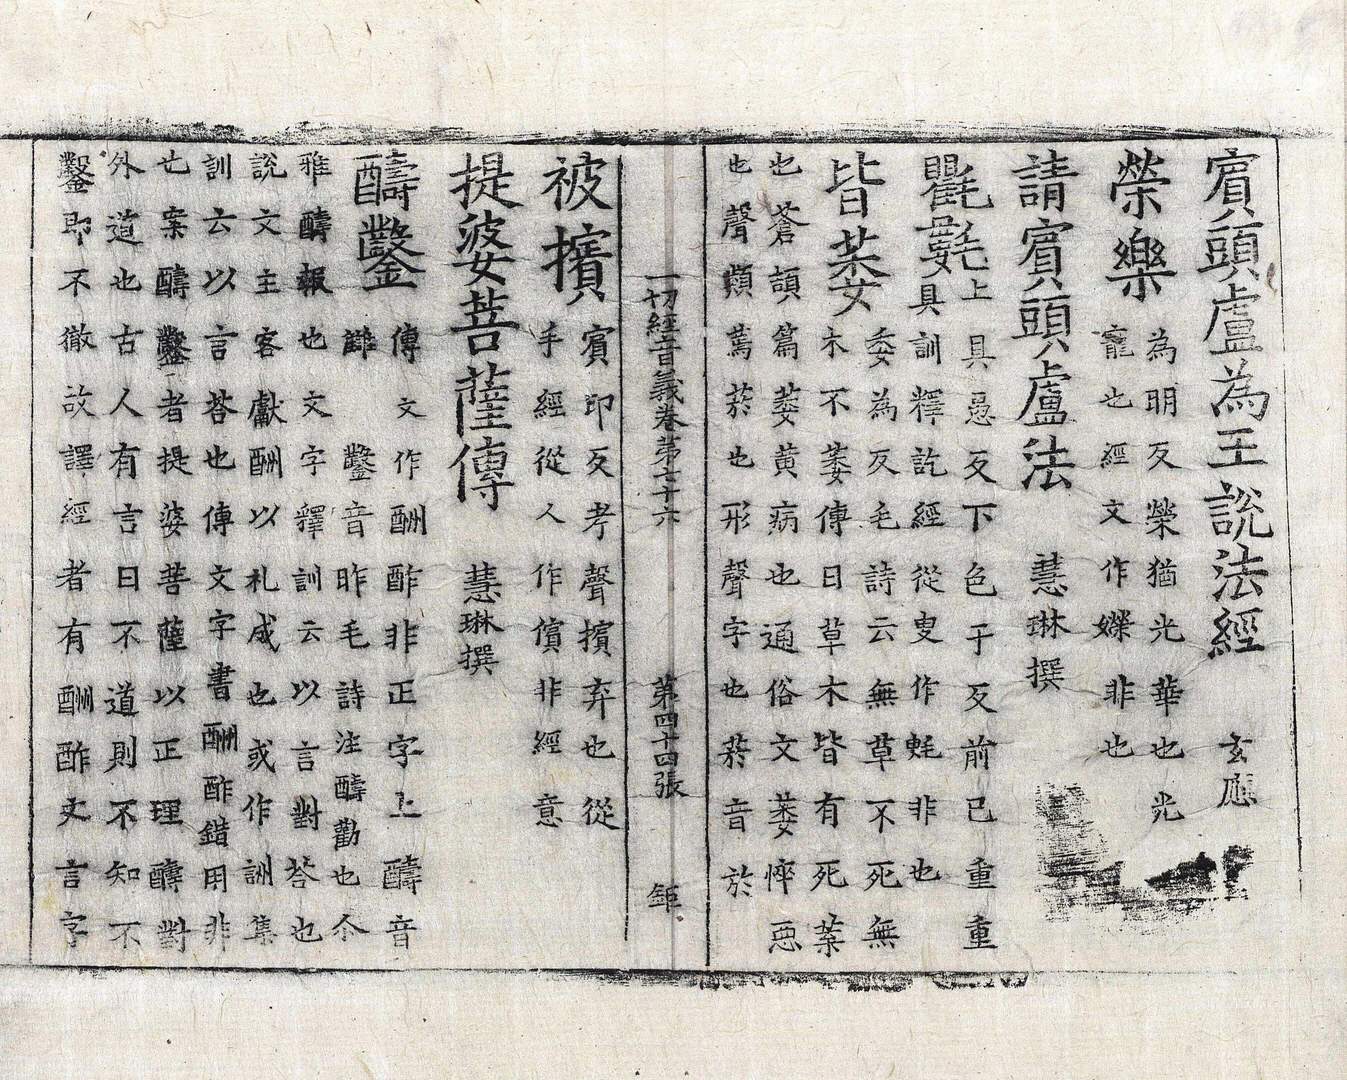 賓頭盧為王說法經　玄應
榮樂　為明反榮猶光華也光
寵也經文作嬫非也
請賓頭盧法　慧琳撰
氍氀　上具愚反下色于反前已重重
具訓釋訖經從叟作非也
皆萎　委為反毛詩云無草不死無
木不萎傳曰草木皆有死葉
也蒼頡篇萎黄病也通俗文萎悴惡
也聲類蔫菸也形聲字也菸音於
一切經音義卷第七十六　第四十四張　鉅
被擯　賓印反考聲擯弃也從
手經從人作儐非經意
提婆菩薩傳　慧琳撰
醻鑿　傳文作酬酢非正字上醻音
讎　鑿音昨毛詩注醻勸也尒
雅醻報也文字釋訓云以言對荅也
說文主客獻酬以礼成也或作詶集
訓云以言荅也傳文字書酬酢錯用非
也案醻鑿者提婆菩薩以正理醻對
外道也古人有言曰不道則不知不
鑿即不徹故譯經者有酬酢文言字